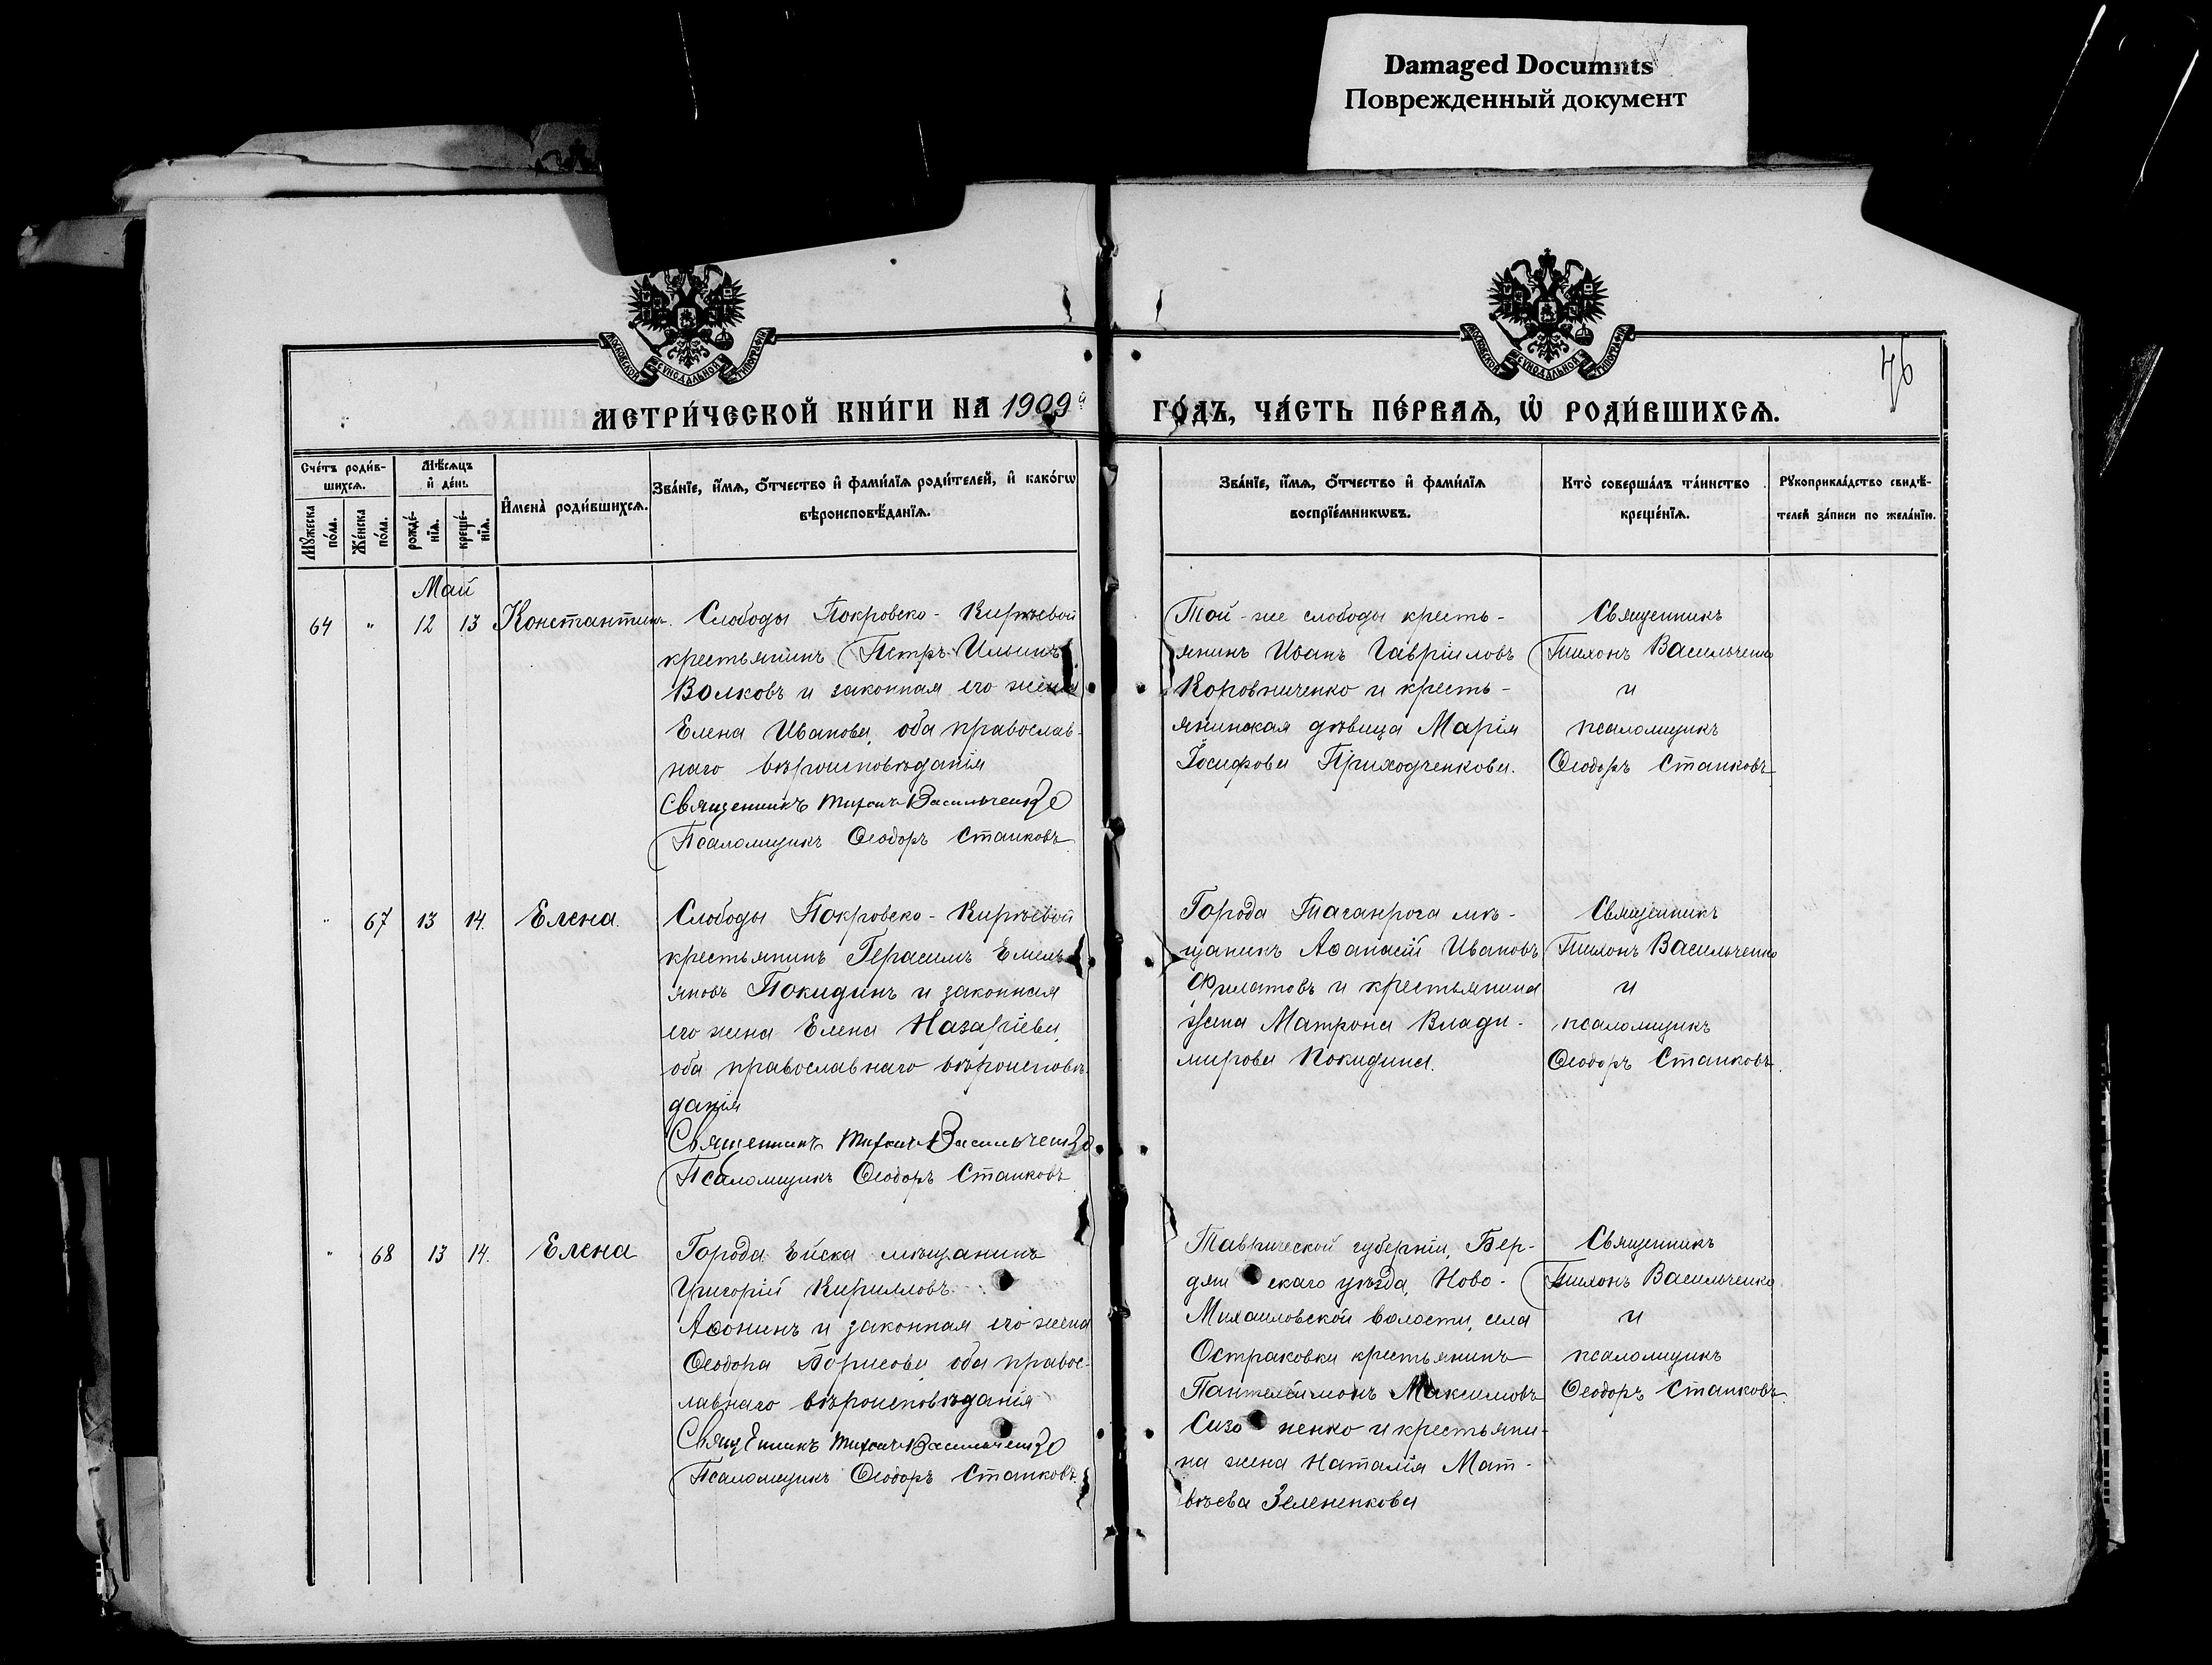 Damaged Documnts
Поврежденный документ
МОСКОВСКОЙ СѴНОДАЛЬНОЙ ТИПОГРАФІИ
МОСКОВСКОЙ СѴНОДАЛЬНОЙ ТИПОГРАФІИ
76
МЕТРИ́ЧЕСКОЙ КНИ́ГИ НА 1909
ГО́ДЪ, ЧА́СТЬ ПЕ́РВАѦ, Ѡ҆ РОДИ́ВШИХСѦ.
Сче́тъ роди́в-
шихсѧ.
Мꙋжеска по́ла.
Же́нска по́ла.
Мѣ́сѧцъ
и҆ де́нь
рожде́-
нїѧ.
креще́-
нїѧ.
И҆мена̀ роди́вшихсѧ.
Зва́нїе, и҆́мѧ, ѻ҆́тчество и҆ фами́лїѧ роди́телей, и҆ како́гѡ
вѣроисповѣ́данїѧ.
Зва́нїе, и҆́мѧ, ѻ҆́тчество и҆ фами́лїѧ
воспрїе́мникѡвъ.
Кто̀ соверша́лъ та́инство
креще́нїѧ.
Рꙋкоприкла́дство свидѣ́-
телей за́писи по жела́нїю.
Май
64 " 12 13 Константинъ.
Слободы Покровско-Киреевой
крестьянинъ Петръ Ильинъ
Волковъ и законная его жена
Елена Иванова, оба православ-
наго вѣроисповѣданія
Священникъ Тихонъ Васильченко
Псаломщикъ Ѳеодоръ Станковъ.
Той-же слободы кресть-
янинъ Иванъ Гавріиловъ
Коровниченко и кресть-
янинская дѣвица Марія
Іосифова Приходченкова.
Священникъ
Тихонъ Васильченко
и
псаломщикъ
Ѳеодоръ Станковъ
" 67 13 14. Елена.
Слободы Покровско-Киреевой
крестьянинъ Герасимъ Емель-
яновъ Покидинъ и законная
его жена Елена Назаріева,
оба православнаго вѣроисповѣ-
данія
Священникъ Тихонъ Васильченко
Псаломщикъ Ѳеодоръ Станковъ
Города Таганрога мѣ-
щанинъ Аѳанасій Ивановъ
Филатовъ и крестьянина
жена Матрона Влади-
мирова Покидина.
Священникъ
Тихонъ Васильченко
и
псаломщикъ
Ѳеодоръ Станковъ.
" 68 13 14. Елена
Города Ейска мѣщанинъ
Григорій Кирилловъ
Аѳонинъ и законная его жена
Ѳеодора Борисова, оба правос-
лавнаго вѣроисповѣданія
Священникъ Тихонъ Васильченко
Псаломщикъ Ѳеодоръ Станковъ.
Таврической губерніи, Бер-
дян скаго уѣзда, Ново-
Михаиловской волости, села
Остраковки крестьянинъ
Пантелеимонъ Максимовъ
Сизо ненко и крестьяни-
на жена Наталія Мат-
вѣева Зелененкова
Священникъ
Тихонъ Васильченко
и
псаломщикъ
Ѳеодоръ Станковъ.